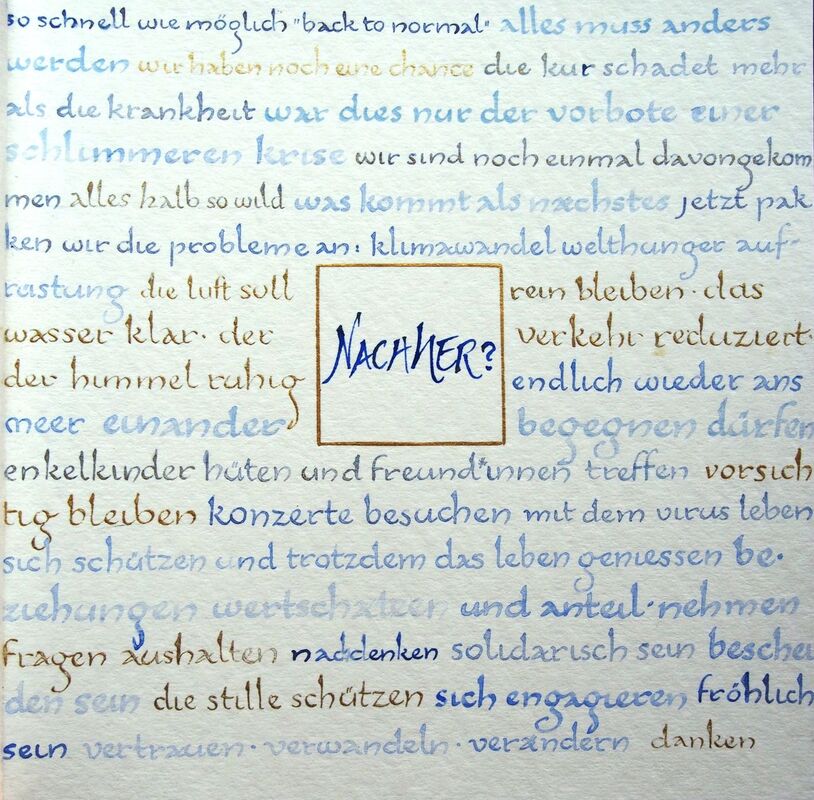 so schnell wie möglich "back to normal" alles muss anders
werden wir haben noch eine chance die kur schadet mehr
als die krankheit war dies nur der vorbote einer
schlimmeren krise wir sind noch einmal davongekom
men alles halb so wild was kommt als nächstes jetzt pak
ken wir die probleme an: klimawandel welthunger auf-
rüstung die luft soll rein bleiben · das
wasser klar · der verkehr reduziert ·
der himmel ruhig endlich wieder ans
NACHHER?
meer einander begegnen dürfen
enkelkinder hüten und freund*innen treffen vorsich
tig bleiben konzerte besuchen mit dem virus leben
sich schützen und trotzdem das leben geniessen be·
ziehungen wertschätzen und anteil·nehmen
fragen aushalten naddenken solidarisch sein beschei
den sein die stille schützen sich engagieren fröhlich
sein vertrauen · verwandeln · verändern danken